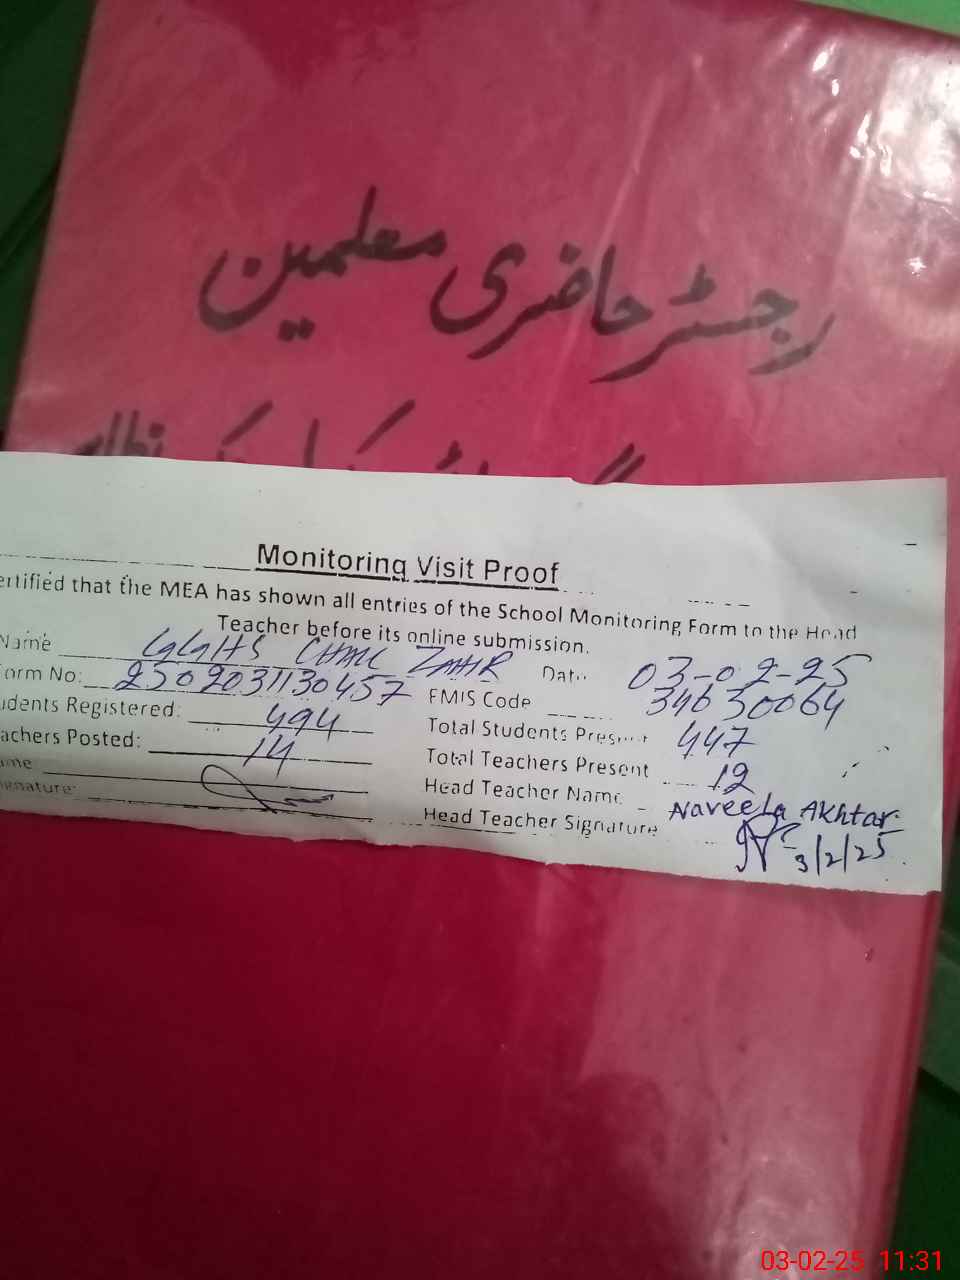 رجسٹر حاضری معلمین
Monitoring Visit Proof
ertified that the MEA has shown all entries of the School Monitoring Form to the Head
Teacher before its online submission.
Name GGHS CHAK ZAHIR Date 03-02-25
orm No: 2502031130457 EMIS Code 34630064
udents Registered: 494 Total Students Present 447
achers Posted: 14 Total Teachers Present 12
ame Head Teacher Name Naveela Akhtar
ignature: Head Teacher Signature
3/2/25
03-02-25 11:31